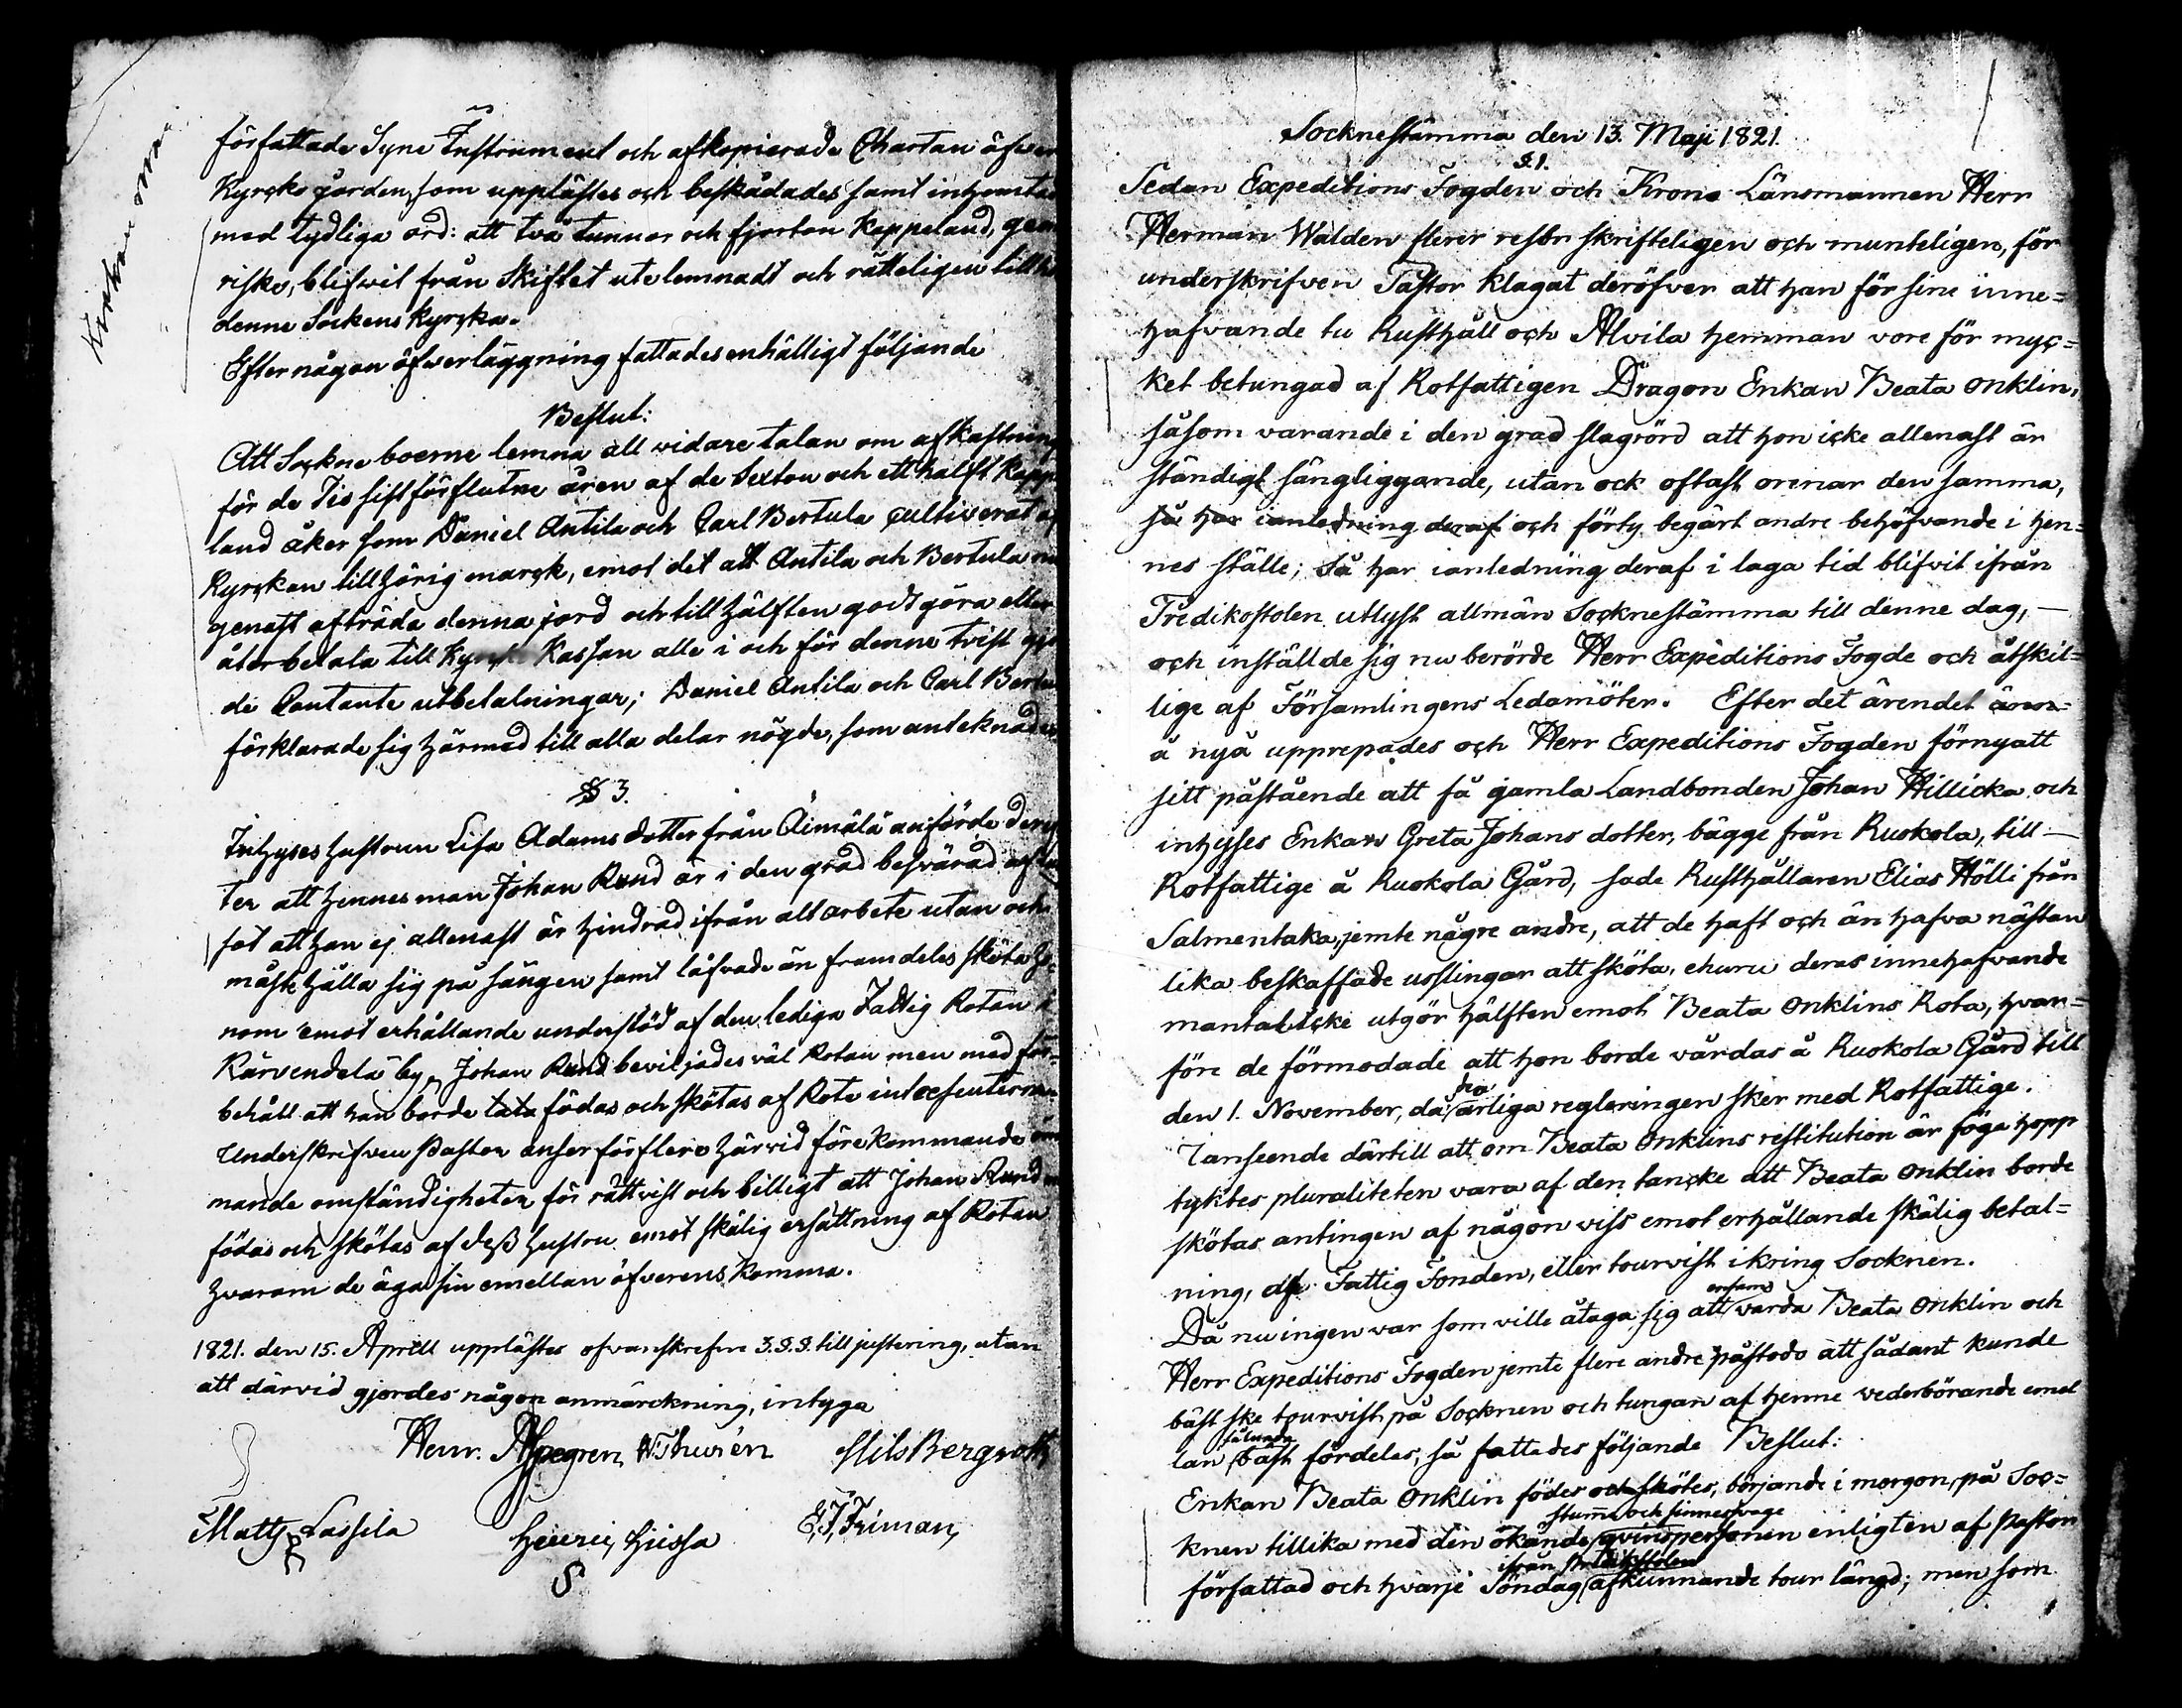 författade Syne Instrument och afkopierade Chartan öfwer
Kyrcko gården, som upplästes och beskådades samt inhemta
med tydliga ord: att två tunnor och fjorton Kappeland, geo
riske, blifwit från Skiftet utelemnadt och rätteligen till
denne Sockens Kyrcka.
Efter någon öfwerläggning fattades enhälligt följande
Beslut:
Att Sockne boerne lemna all widare talan om afkastning
för de Tio sistförflutne åren af de Sexton och ett halft Kapp
land åker som Daniel Antila och Carl Bertula cultiverat
Kyrckan tillhörig marck, emot det att Antila och Bertula
genast afträda denna jord och till hälften godtgöra eller
återbetala till Kyrcko Kassan alle i och för denne tvist
de Contante utbetalningar; Daniel Antila och Carl Bertu
förklarade sig härmed till alla delar nögde, som antecknades
§ 3.
Inhyses hustrun Lisa Adams dotter från Äimälä anförde
ter att hennes man Johan Rund är i den grad besvärad af
sot att han ej allenast är hindrad ifrån allt arbete utan och
måste hålla sig på sängen samt låfvade än framdeles sköta ho
nom emot erhållande understöd af den lediga Fattig Rotan i
Kärvendelä by, Johan Rund beviljades väl Rotan men med för-
behåll att han borde tata födas och skötas af Rote intressenterna
Underskrifven Pastor anser för flere härvid förekommande
mande omständigheter för rättvist och billigt att Johan Rund
födas och skötas af dess hustru emot skälig ersättning af Rotan
hvarom de äga sin emellan öfverens komma.
1821. den 15. Aprill upplästes ofvanskrefne 3.§.§. till justering, utan
att därvid gjordes någon anmärckning, intyga
Henr. Aspegren N. Thurén Nils Bergroth
Matts Lassila Henric Hiissa E. J. Friman,
Socknestämma den 13. Maji 1821.
§.1.
Sedan Expeditions Fogden och Krono Länsmannen Herr
Herman Walden flere resor skrifteligen och munteligen, för
underskrifven Pastor klagat deröfver att han för sine inne=
hafvande tu Rusthåll och Alvila hemman vore för myc=
ket betungad af Rotfattigen Dragon Enkan Beata Onklin,
såsom varande i den grad slagrörd att hon icke allenast är
ständigt sängliggande, utan ock oftast orenar den samma,
så har ianledning deraf och förty begärt andre behöfvande i hen=
nes ställe; Så har ianledning deraf i laga tid blifvit ifrån
Predikostolen utlyst allmän Socknestämma till denne dag, —
och inställde sig nu berörde Herr Expeditions Fogde och åtskil=
lige af Församlingens Ledamöter. Efter det ärendet
å nyå upprepades och Herr Expeditions Fogden förnyatt
sitt påstående att få gamla Landbonden Johan Hillicka och
inhysses Enkan Greta Johans dotter, bägge från Ruokola, till —
Rotfattige å Ruokola Gård, sade Rusthållaren Elias Hölli från
Salmentaka, jemte någre andre, att de haft och än hafva nästan
lika beskaffade usslingar att sköta, ehuru deras innehafvande
mantal icke utgör hälften emot Beata Onklins Rota, hvar=
före de förmodade att hon borde vårdas å Ruokola Gård till
den 1. November, då årliga regleringen sker med Rotfattige.
Ianseende därtill att om Beata Onklins restitution är föga hopp
tyktes pluraliteten vara af den tancke att Beata Onklin borde
skötas antingen af någon viss emot erhållande skälig betal=
ning, af Fattig Fonden, eller tourvist ikring Socknen.
ensam
Då nu ingen var som ville åtaga sig att vårda Beata Onklin och
Herr Expeditions Fogden jemte flere andre påstodo att sådant kunde
bäst ske tourvist på Socknen och tungan af henne vederbörande emel
sålunda
lan bäst fördelas, så fattades följande Beslut:
Enkan Beata Onklin födes och skötes, börjande i morgon, på Soc=
stumm och sinnesvage
knen tillika med den okände qvinspersonen enligt en af Pastor
ifrån Predikstolen
författad och hvarje Söndag afkunnande tour längd; men som